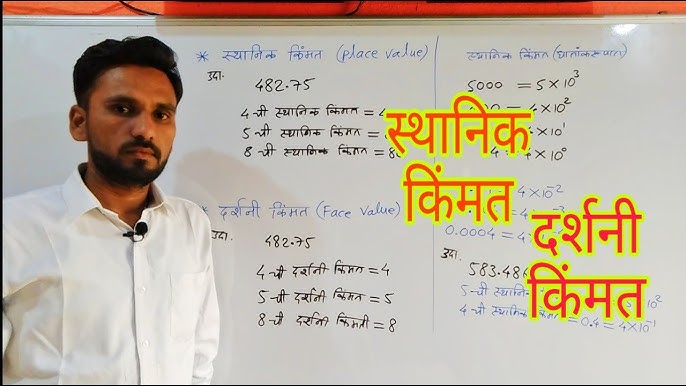 * स्थानिक किंमत (place value)
उदा.
482.75
4 ची स्थानिक किंमत = 4
5 ची स्थानिक किंमत =
8 ची स्थानिक किंमत = 8
* दर्शनी किंमत (Face value)
उदा.
482.75
4 ची दर्शनी किंमत = 4
5 ची दर्शनी किंमत = 5
8 ची दर्शनी किंमती = 8
स्थानिक किंमत (घातांकस्वरूपात)
5000 = 5 × 10³
= 4 × 10²
× 10¹
4 × 10⁰
4 × 10⁻²
0.0004 = 4
उदा.
583.486
5 ची स्थानि 10²
4 ची स्थानिक किंमत = 0.4 = 4×10⁻¹
स्थानिक
किंमत
दर्शनी
किंमत